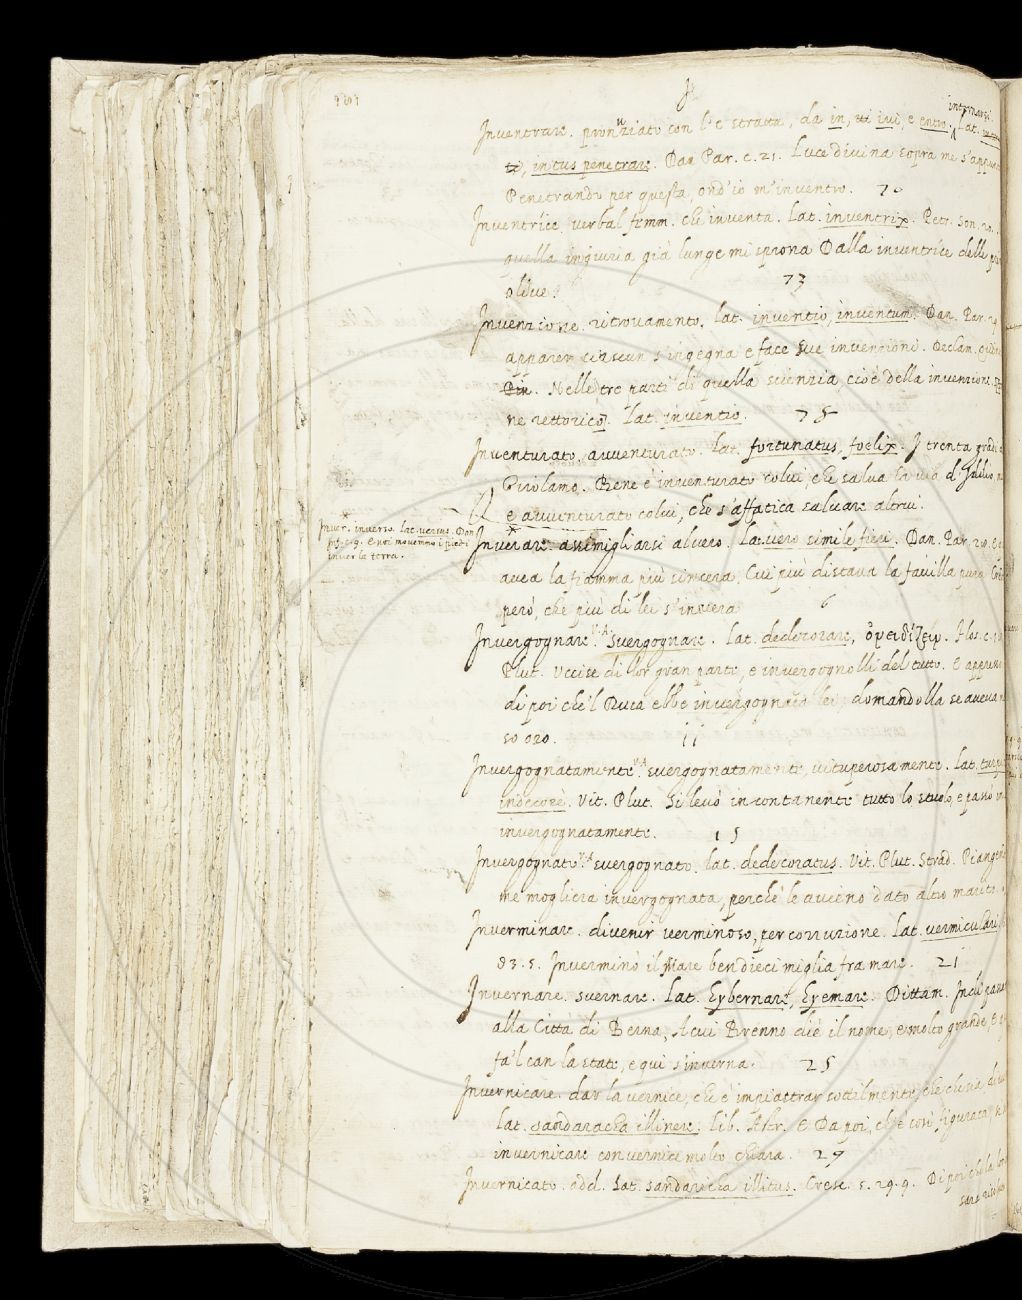 J
internarsi.
Inventrare. pronunziato con l'e stratta, da in, ivi, e entro. Lat.
intus penetrare. Dan Par. c. 21. Luce divina sopra me s'appun
Penetrando per questa, ond'io m'inventro. 70
Inventrice, verbal femm. che inventa. Lat. inventrix. Petr. Son. 20.
quella ingiuria già lunge mi sprona Dalla inventrice delle pri
olive. 73
Invenzione. ritrovamento. lat. inventio, inventum. Dan. Par. 29
apparer ciascun s'ingegna e face sue invenzioni. Declam.
Nelle tre parti di quella scienzia, cioè della invenzione.
ne rettorico. lat. inventio. 75
Inventurato. avventurato. Lat. fortunatus, foelix. I trenta gradi
Girolamo. Bene è inventurato colui, che salva la via d'Iddio,
e avventurato colui, che s'affatica salvare altrui.
Inver. inverso. lat. versus. Dan
inf. c. 9. E noi movemmo i piedi
inver la terra.
Inverare. assimigliarsi al vero. Lat. vero simile fieri. Dan. Par. 28. E
avea la fiamma più sincera, Cui più distava la favilla pura Cre
però, che più di lei s'invera 6
Invergognare V.A. svergognare. Lat. dedecorare,
Plut. Uccise di lor gran parte, e invergognolli del tutto. E appresso
di poi che 'l Duca ebbe invergognata lei, domandolla se aveva
so oro. 11
Invergognatamente V.A. svergognatamente, vituperosamente. Lat. turp
indecorè. Vit. Plut. Si levò incontanente tutto lo stuolo, e passò
invergognatamente. 15
Invergognato V.A. svergognato. lat. dedecoratus. Vit. Plut. Strad. Piange
me mogliera invergognata, perchè le avieno dato altro marito.
Inverminare. divenir verminoso, per corruzione. Lat. vermiculari,
83. 5. Inverminò il Mare ben dieci miglia fra mare. 21
Invernare. svernare. Lat. Hybernare, Hyemare. Dittam.
alla Città di Berna, A cui Brenno diè il nome, e molto grande,
fa 'l can la state, e qui s'inverna. 25
Invernicare. dar la vernice, che è impiastrar sottilmente, che che sia,
lat. sandaracha illinere. lib. Astr. E Da poi, che è così figurata
invernicare con vernice molto chiara. 29
Invernicato. add. Lat. sandaracha illitus. Cresc. 5. 29. 9. Di poi che la